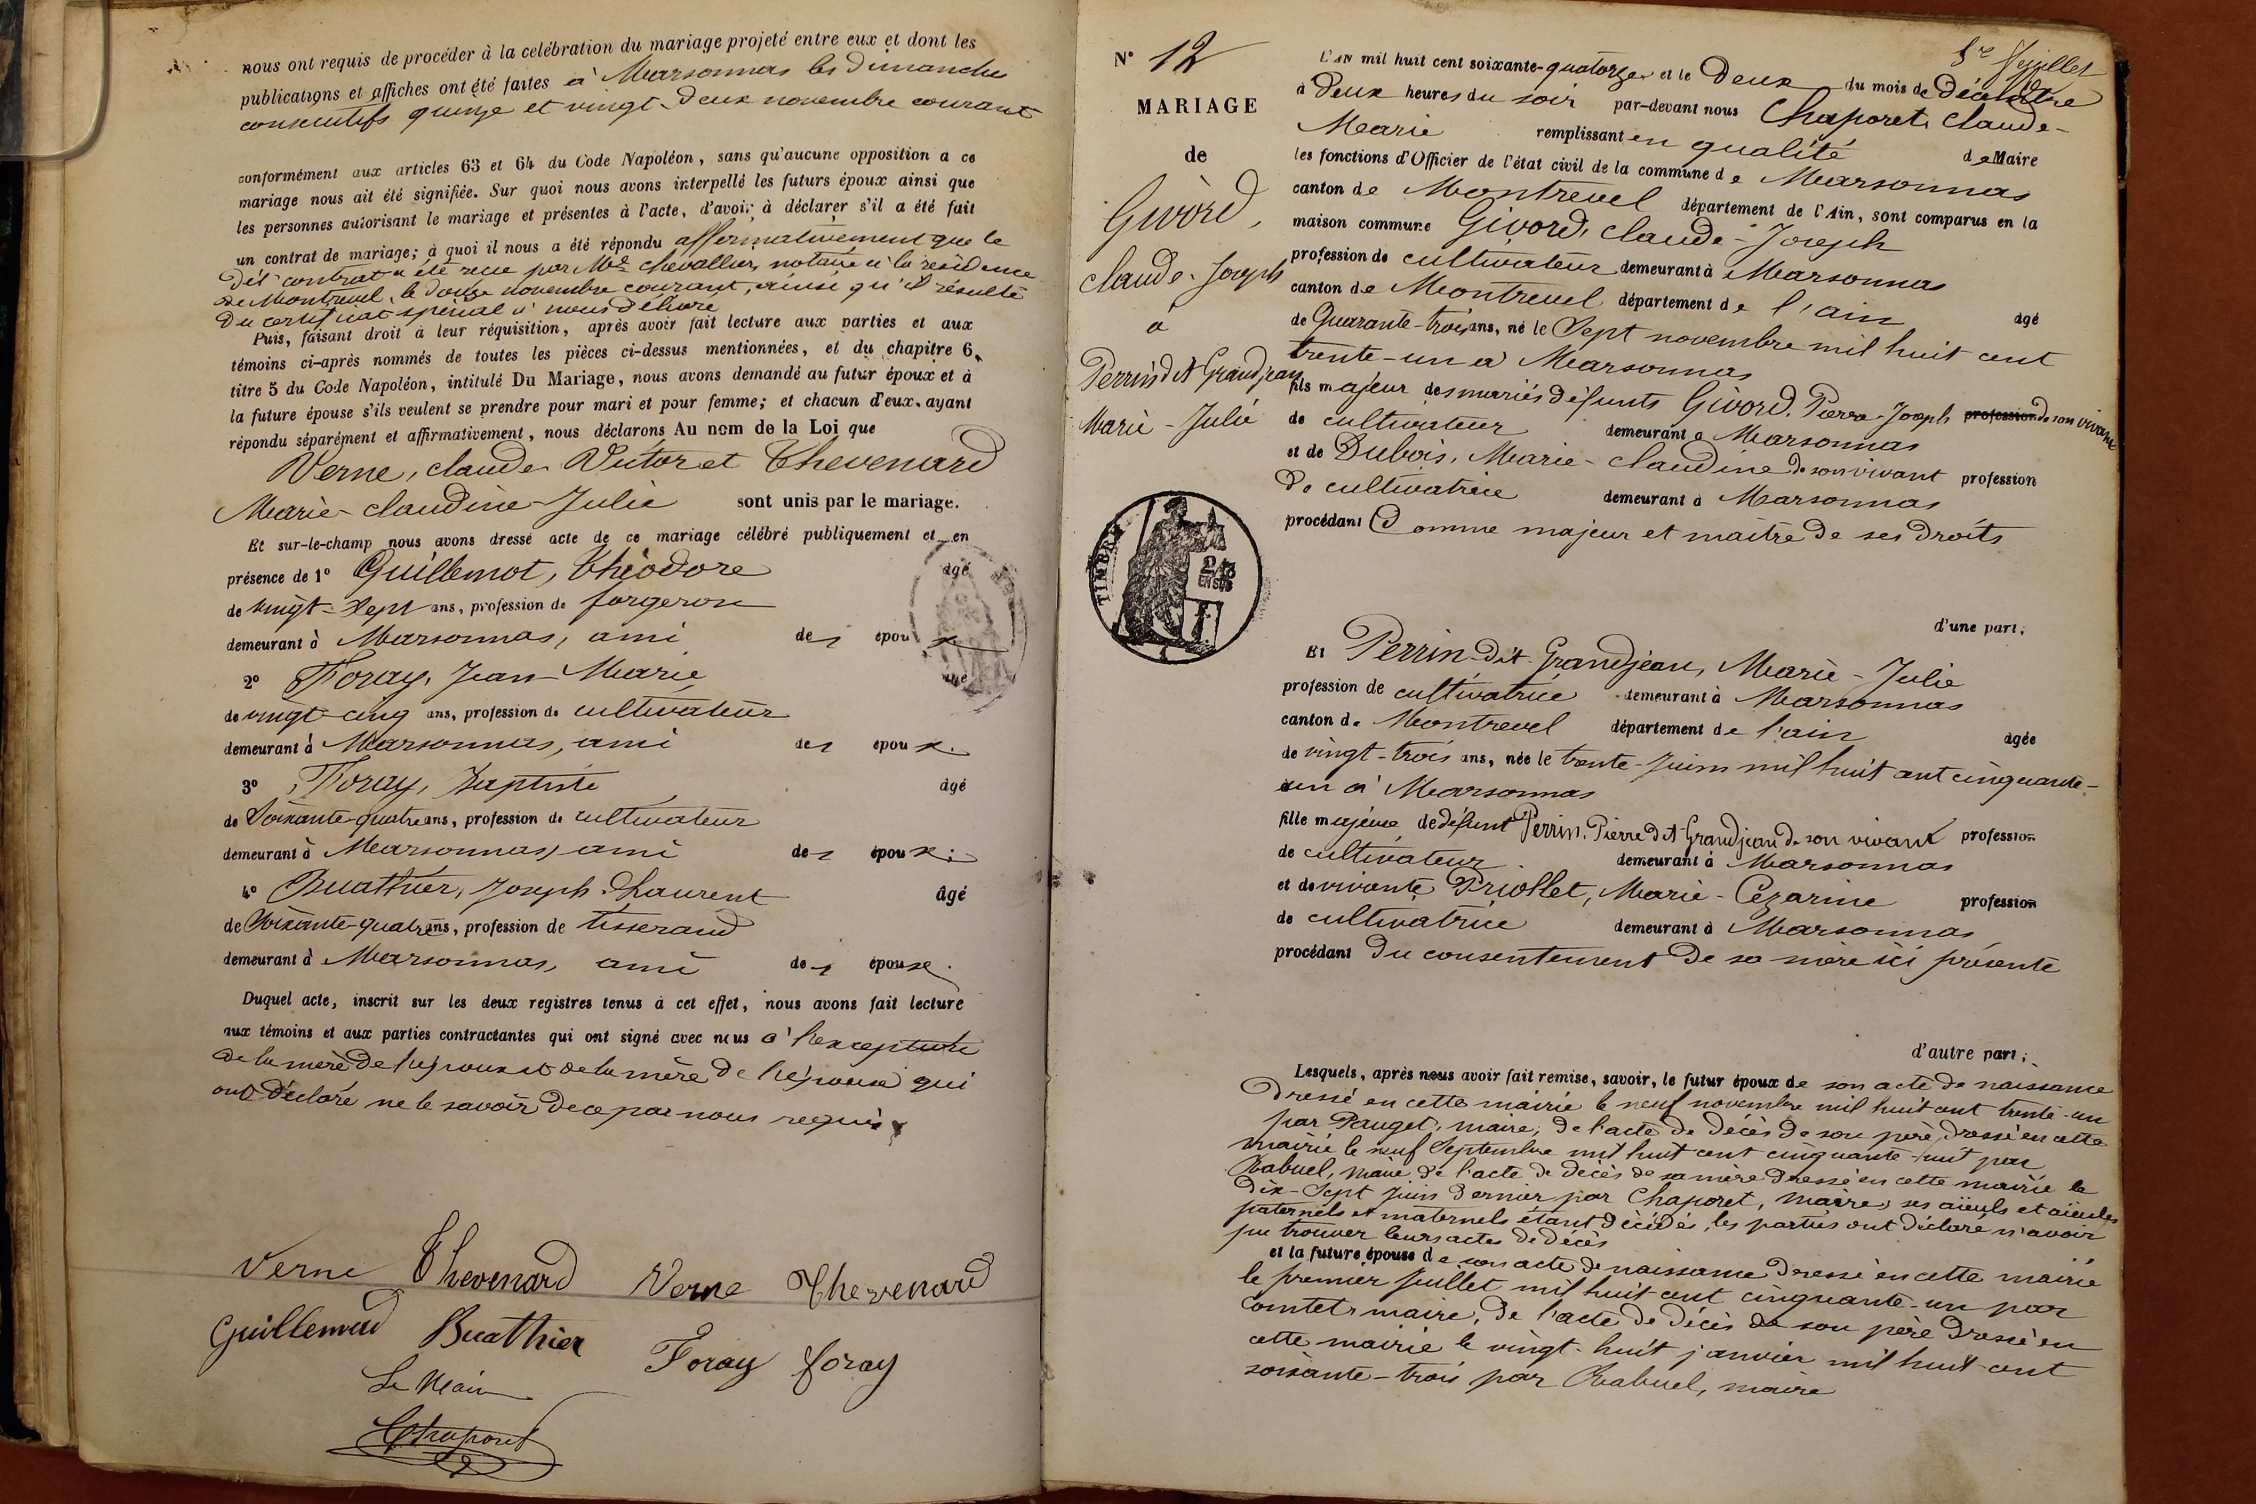 nous ont requis de procéder à la célébration du mariage projeté entre eux et dont les
publications et affiches ont été faites à Marsonnas les dimanches
consecutifs quinze et vingt-deux novembre courant
conformément aux articles 63 et 64 du Code Napoléon, sans qu'aucune opposition a ce
mariage nous ait été signifiée. Sur quoi nous avons interpellé les futurs époux ainsi que
les personnes autorisant le mariage et présentes à l'acte, d'avoir à déclarer s'il a été fait
un contrat de mariage; à quoi il nous a été répondu affirmativement que le
dit contrat a été reçu par Me Chevallier, notaire à la résidence
de Montrevel, le douze novembre courant, ainsi qu'il résulte
du certificat spécial à nous délivré
Puis, faisant droit à leur réquisition, après avoir fait lecture aux parties et aux
témoins ci-après nommés de toutes les pièces ci-dessus mentionnées, et du chapitre 6,
titre 5 du Code Napoléon, intitulé Du Mariage, nous avons demandé au futur époux et à
la future épouse s'ils veulent se prendre pour mari et pour femme; et chacun d'eux ayant
répondu séparément et affirmativement, nous déclarons Au nom de la Loi que
Verne, Claude Victor et Thevenard
Marie-Claudine-Julie sont unis par le mariage.
Et sur-le-champ nous avons dressé acte de ce mariage célébré publiquement et en
présence de 1° Guillemot, Théodore âgé
de vingt-sept ans, profession de forgeron
demeurant à Marsonnas, ami des époux
2° Foray, Jean-Marie âgé
de vingt-cinq ans, profession de cultivateur
demeurant à Marsonnas, ami des époux.
3° Foray, Baptiste âgé
de soixante-quatre ans, profession de cultivateur
demeurant à Marsonnas, ami des époux;
4° Buathier, Joseph-Laurent âgé
de soixante-quatre ans, profession de tisserand
demeurant à Marsonnas, ami des épouse.
Duquel acte, inscrit sur les deux registres tenus à cet effet, nous avons fait lecture
aux témoins et aux parties contractantes qui ont signé avec nous à l'exception
de la mère de l'époux et de la mère de l'épouse qui
ont déclaré ne le savoir de ce par nous requis
Verne Thevenard Verne Thevenard
Guillemot Buathier Foray foray
Le Maire
Chaporet
5e feuillet
N° 12
MARIAGE
de
Givord,
Claude-Joseph
à
Perrin dit Grandjean
Marie-Julie
TIMBRE
2/10
EN SUS
L'AN mil huit cent soixante-quatorze et le deux du mois de décembre
à deux heures du soir par-devant nous Chaporet, Claude-
Marie remplissant en qualité de Maire
les fonctions d'Officier de l'état civil de la commune de Marsonnas
canton de Montrevel département de l'Ain, sont comparus en la
maison commune Givord, Claude-Joseph
profession de cultivateur demeurant à Marsonnas
canton de Montrevel département de l'ain âgé
de Quarante-trois ans, né le Sept novembre mil huit cent
trente-un à Marsonnas
fils majeur des mariés défunts Givord, Pierre-Joseph profession de son vivant
de cultivateur demeurant à Marsonnas
et de Dubois, Marie-Claudine de son vivant profession
de cultivatrice demeurant à Marsonnas
procédant Comme majeur et maître de ses droits
d'une part;
Et Perrin-dit-Grandjean, Marie-Julie
profession de cultivatrice demeurant à Marsonnas
canton de Montrevel département de l'ain âgée
de vingt-trois ans, née le trente-Juin mil huit cent cinquante-
un à Marsonnas
fille majeure de défunt Perrin, Pierre dit Grandjean de son vivant profession
de cultivateur demeurant à Marsonnas
et de vivante Priollet, Marie-Cezarine profession
de cultivatrice demeurant à Marsonnas,
procédant du consentement de sa mère ici présente
d'autre part;
Lesquels, après nous avoir fait remise, savoir, le futur époux de son acte de naissance
dressé en cette mairie le neuf novembre mil huit cent trente-un
par Pauget, maire, de l'acte de décès de son père, dressé en cette
mairie le neuf Septembre mil huit cent cinquante-huit par
Rabuel, maire, de l'acte de décès de sa mère dressé en cette mairie le
dix-Sept juin dernier par Chaporet, maire, ses aïeuls et aïeules
paternels et maternels étant décédés, les parties ont déclaré n'avoir
pu trouver leurs actes de décès
et la future épouse de son acte de naissance dressé en cette mairie
le premier Juillet mil huit cent cinquante-un par
Comtet, maire, de l'acte de décès de son père dressé en
cette mairie le vingt-huit janvier mil huit cent
soixante-trois par Rabuel, maire